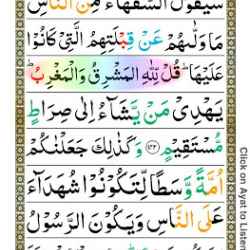 سَيَقُولُ السُّفَهَآءُ مِنَ النَّاسِ
مَا وَلّٰىهُمْ عَنْ قِبْلَتِهِمُ الَّتِىْ كَانُوْا
عَلَيْهَا ؕ قُلْ لِّلّٰهِ الْمَشْرِقُ وَالْمَغْرِبُ ؕ
يَهْدِىْ مَنْ يَّشَآءُ اِلٰى صِرَاطٍ
مُّسْتَقِيْمٍ ﴿۱۴۲﴾ وَكَذٰلِكَ جَعَلْنٰكُمْ
اُمَّةً وَّسَطًا لِّتَکُوْنُوْا شُهَدَآءَ
عَلَى النَّاسِ وَيَكُوْنَ الرَّسُوْلُ
Click on Ayat to